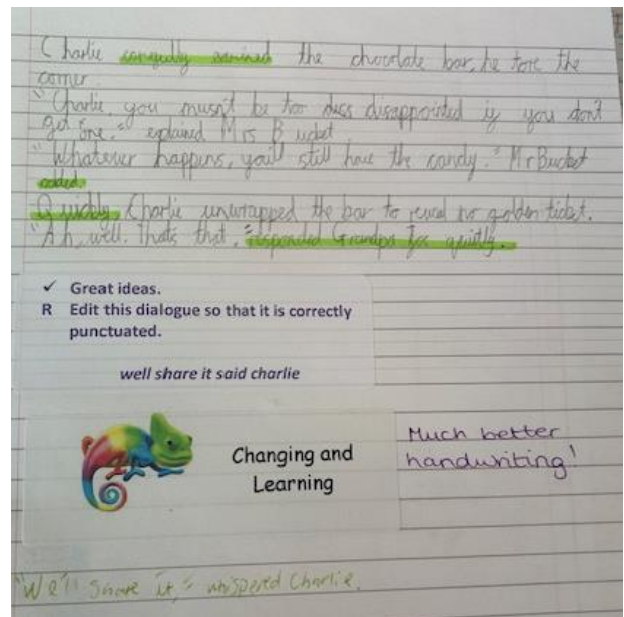 Charlie the chocolate bar, he tore the
corner.
"Charlie, you musn't be too disappointed if you don't
get one," explained Mrs Bucket.
"Whatever happens, you'll still have the candy." Mr Bucket
added.
Quickly, Charlie unwrapped the bar to reveal no golden ticket.
"Ah, well. Thats that," responded Grandpa Joe quietly.
✓ Great ideas.
R Edit this dialogue so that it is correctly
punctuated.
well share it said charlie
Changing and
Learning
Much better
handwriting!
"We'll share it," whispered Charlie.